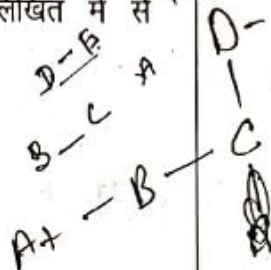 लिखित में से
D - E
A
D-
B - C
A+ - B - C